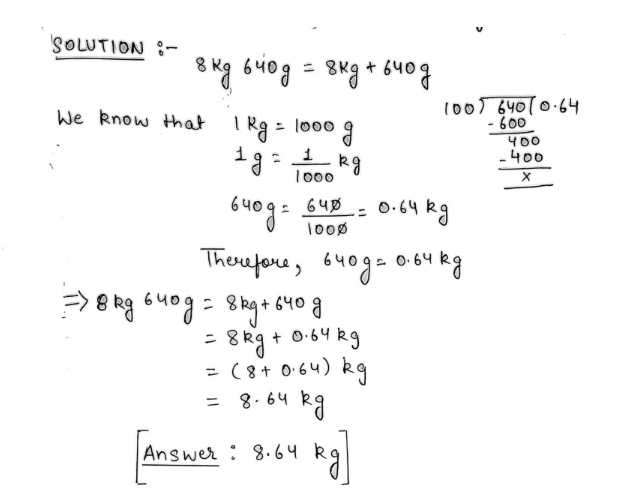 SOLUTION :-
8 kg 640 g = 8kg + 640 g
We know that 1 kg = 1000 g
1 g = 1/1000 kg
640 g = 640/1000 = 0.64 kg
100) 640 ( 0.64
- 600
400
- 400
x
Therefore, 640 g = 0.64 kg
=> 8 kg 640 g = 8kg + 640 g
= 8 kg + 0.64 kg
= (8 + 0.64) kg
= 8.64 kg
[Answer : 8.64 kg]